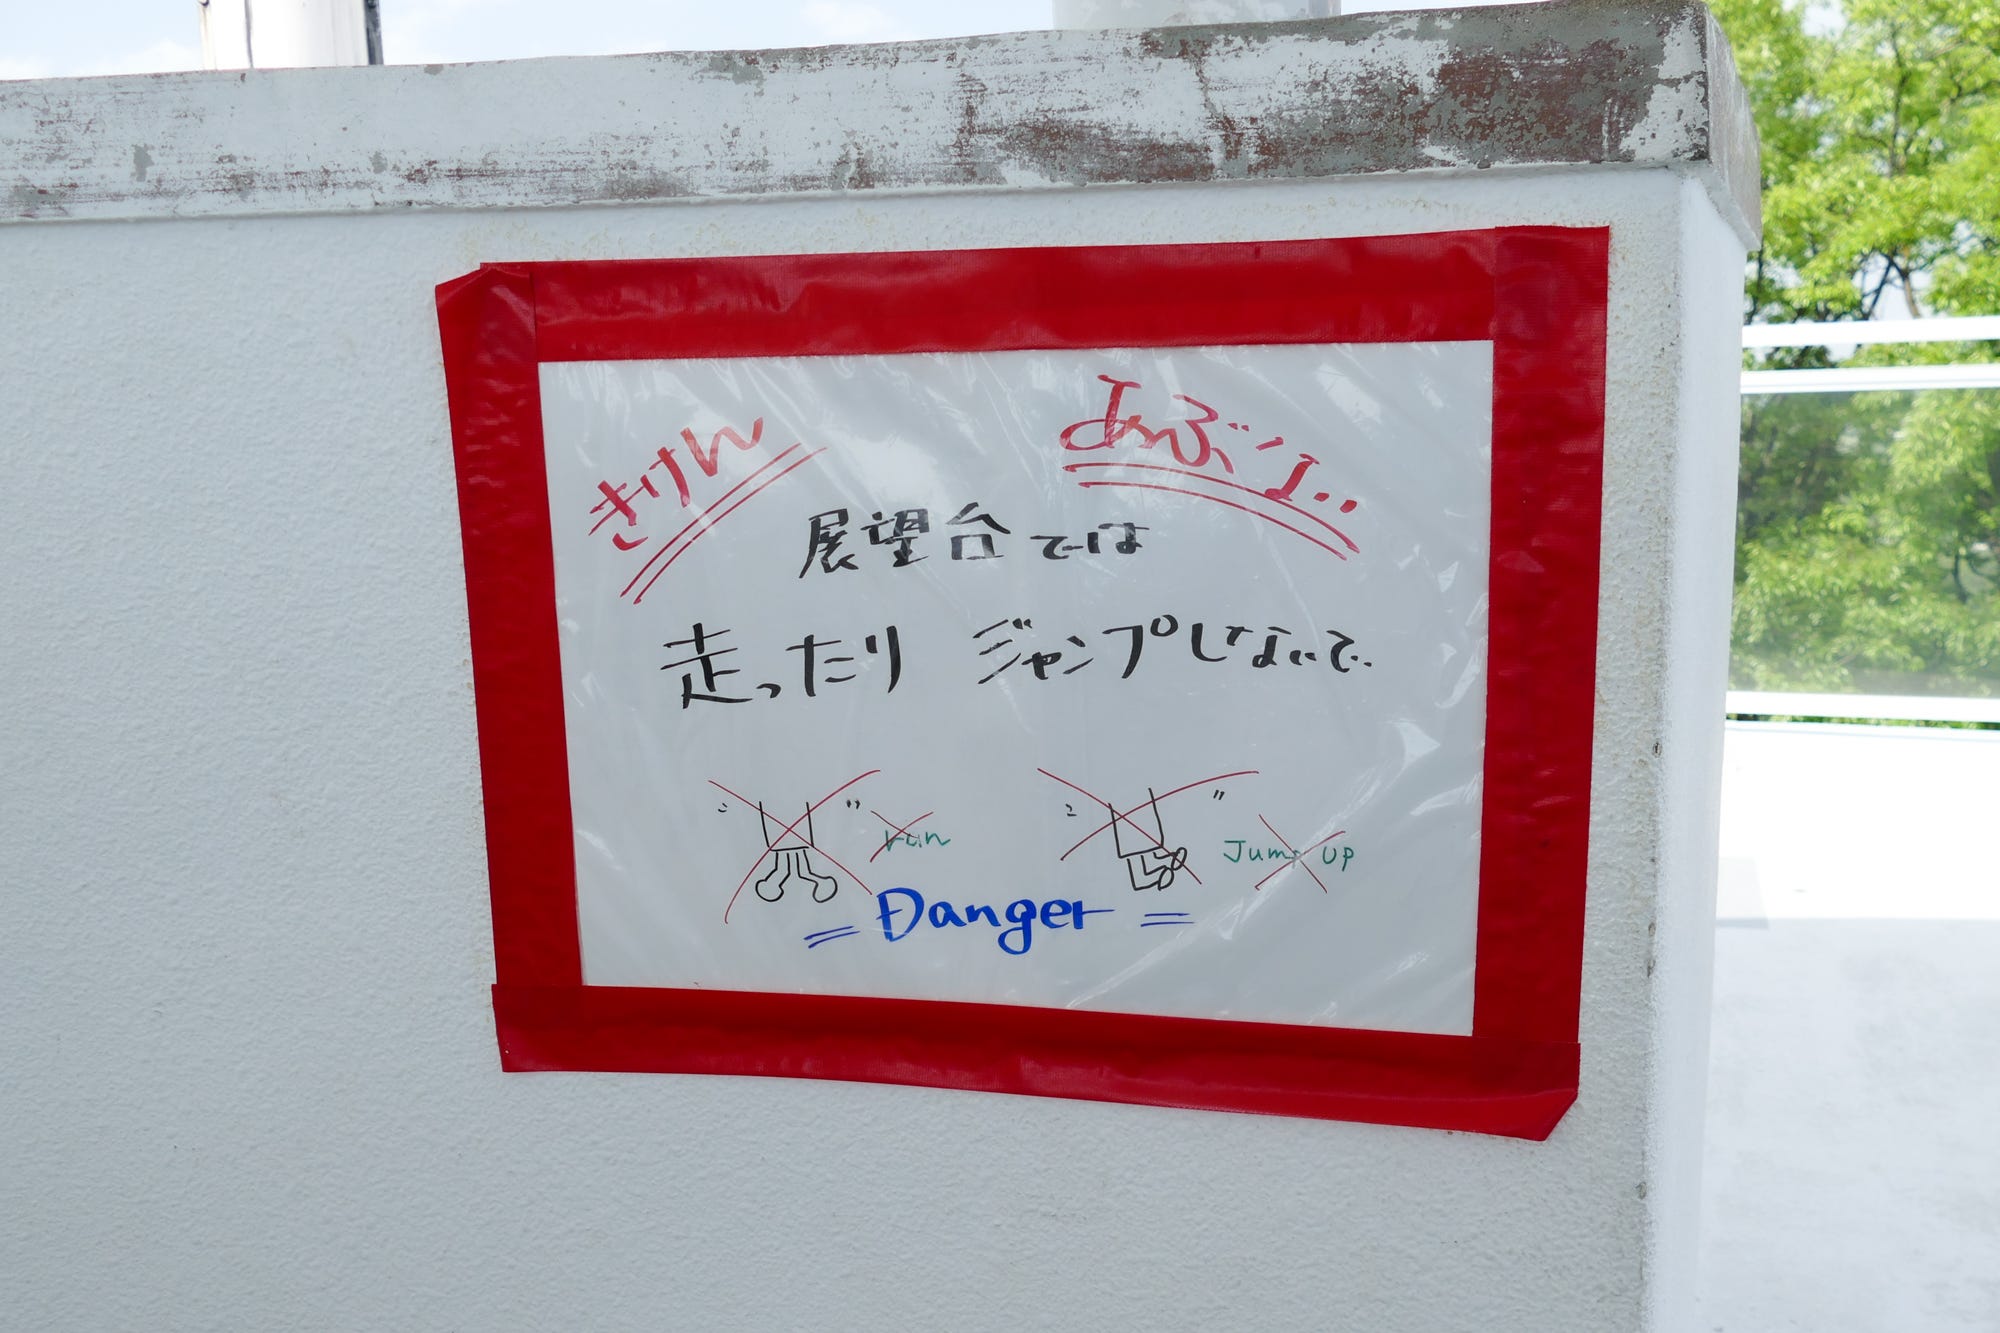 きけん
あぶない
展望台では
走ったり ジャンプしないで
run
Jump up
= Danger =